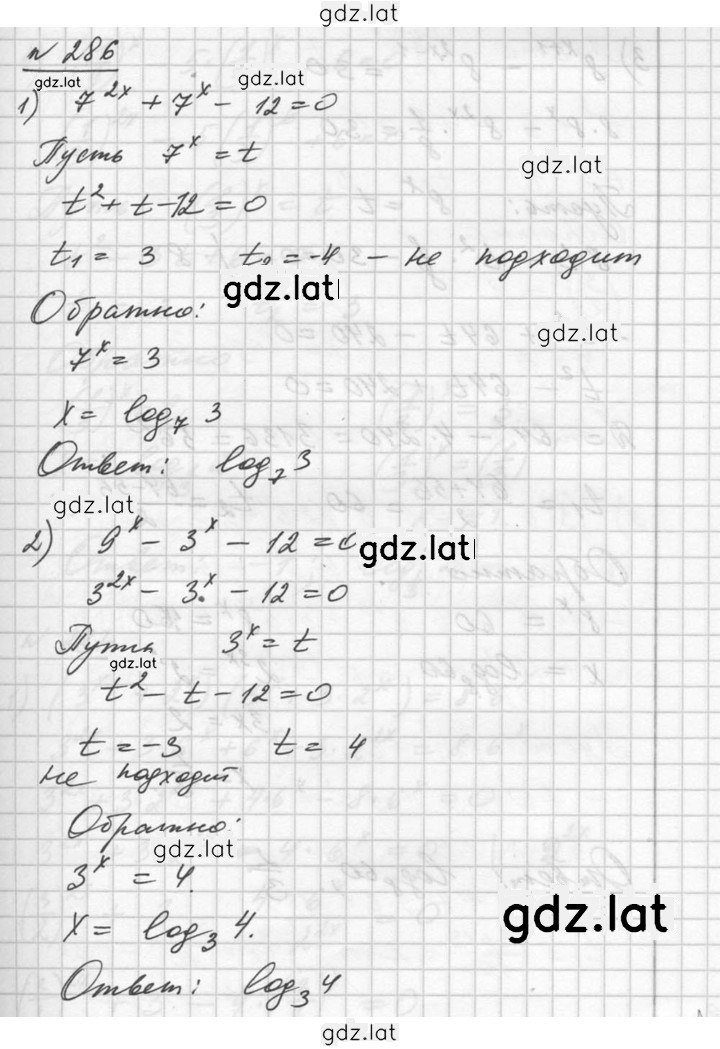 gdz.lat
№ 286
gdz.lat
gdz.lat
1) 7^2x + 7^x - 12 = 0
Пусть 7^x = t
gdz.lat
t^2 + t - 12 = 0
t1 = 3 t2 = -4 - не подходит
gdz.lat
Обратно:
gdz.lat
7^x = 3
x = log7 3
Ответ: log7 3
gdz.lat
2) 9^x - 3^x - 12 = 0
gdz.lat
3^2x - 3^x - 12 = 0
Путь 3^x = t
gdz.lat
t^2 - t - 12 = 0
t = -3 t = 4
не подходит
Обратно:
gdz.lat
3^x = 4.
gdz.lat
x = log3 4.
Ответ: log3 4
gdz.lat